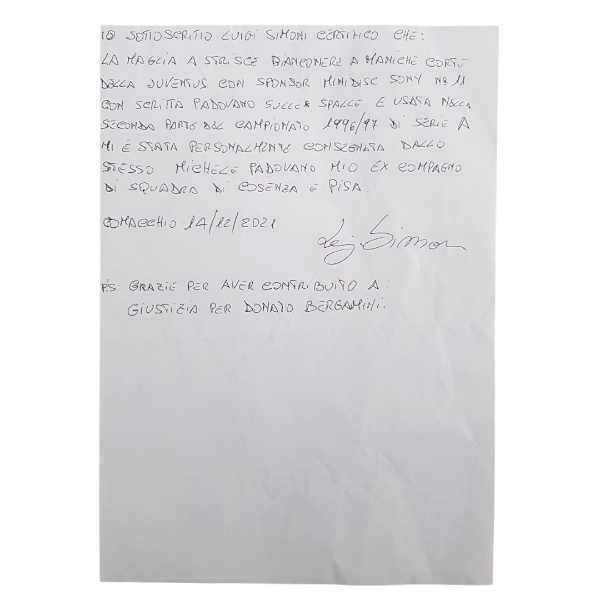 IO SOTTOSCRITTO LUIGI SIMONI CERTIFICO CHE:
LA MAGLIA A STRISCE BIANCONERE A MANICHE CORTE
DELLA JUVENTUS CON SPONSOR MINIDISC SONY Nº 11
CON SCRITTA PADOVANO SULLE SPALLE E USATA NELLA
SECONDA PARTE DEL CAMPIONATO 1996/97 DI SERIE A
MI È STATA PERSONALMENTE CONSEGNATA DALLO
STESSO MICHELE PADOVANO MIO EX COMPAGNO
DI SQUADRA DI COSENZA E PISA.
COMACCHIO 14/12/2021
Luigi Simoni
P.S. GRAZIE PER AVER CONTRIBUITO A:
GIUSTIZIA PER DONATO BERGAMINI.